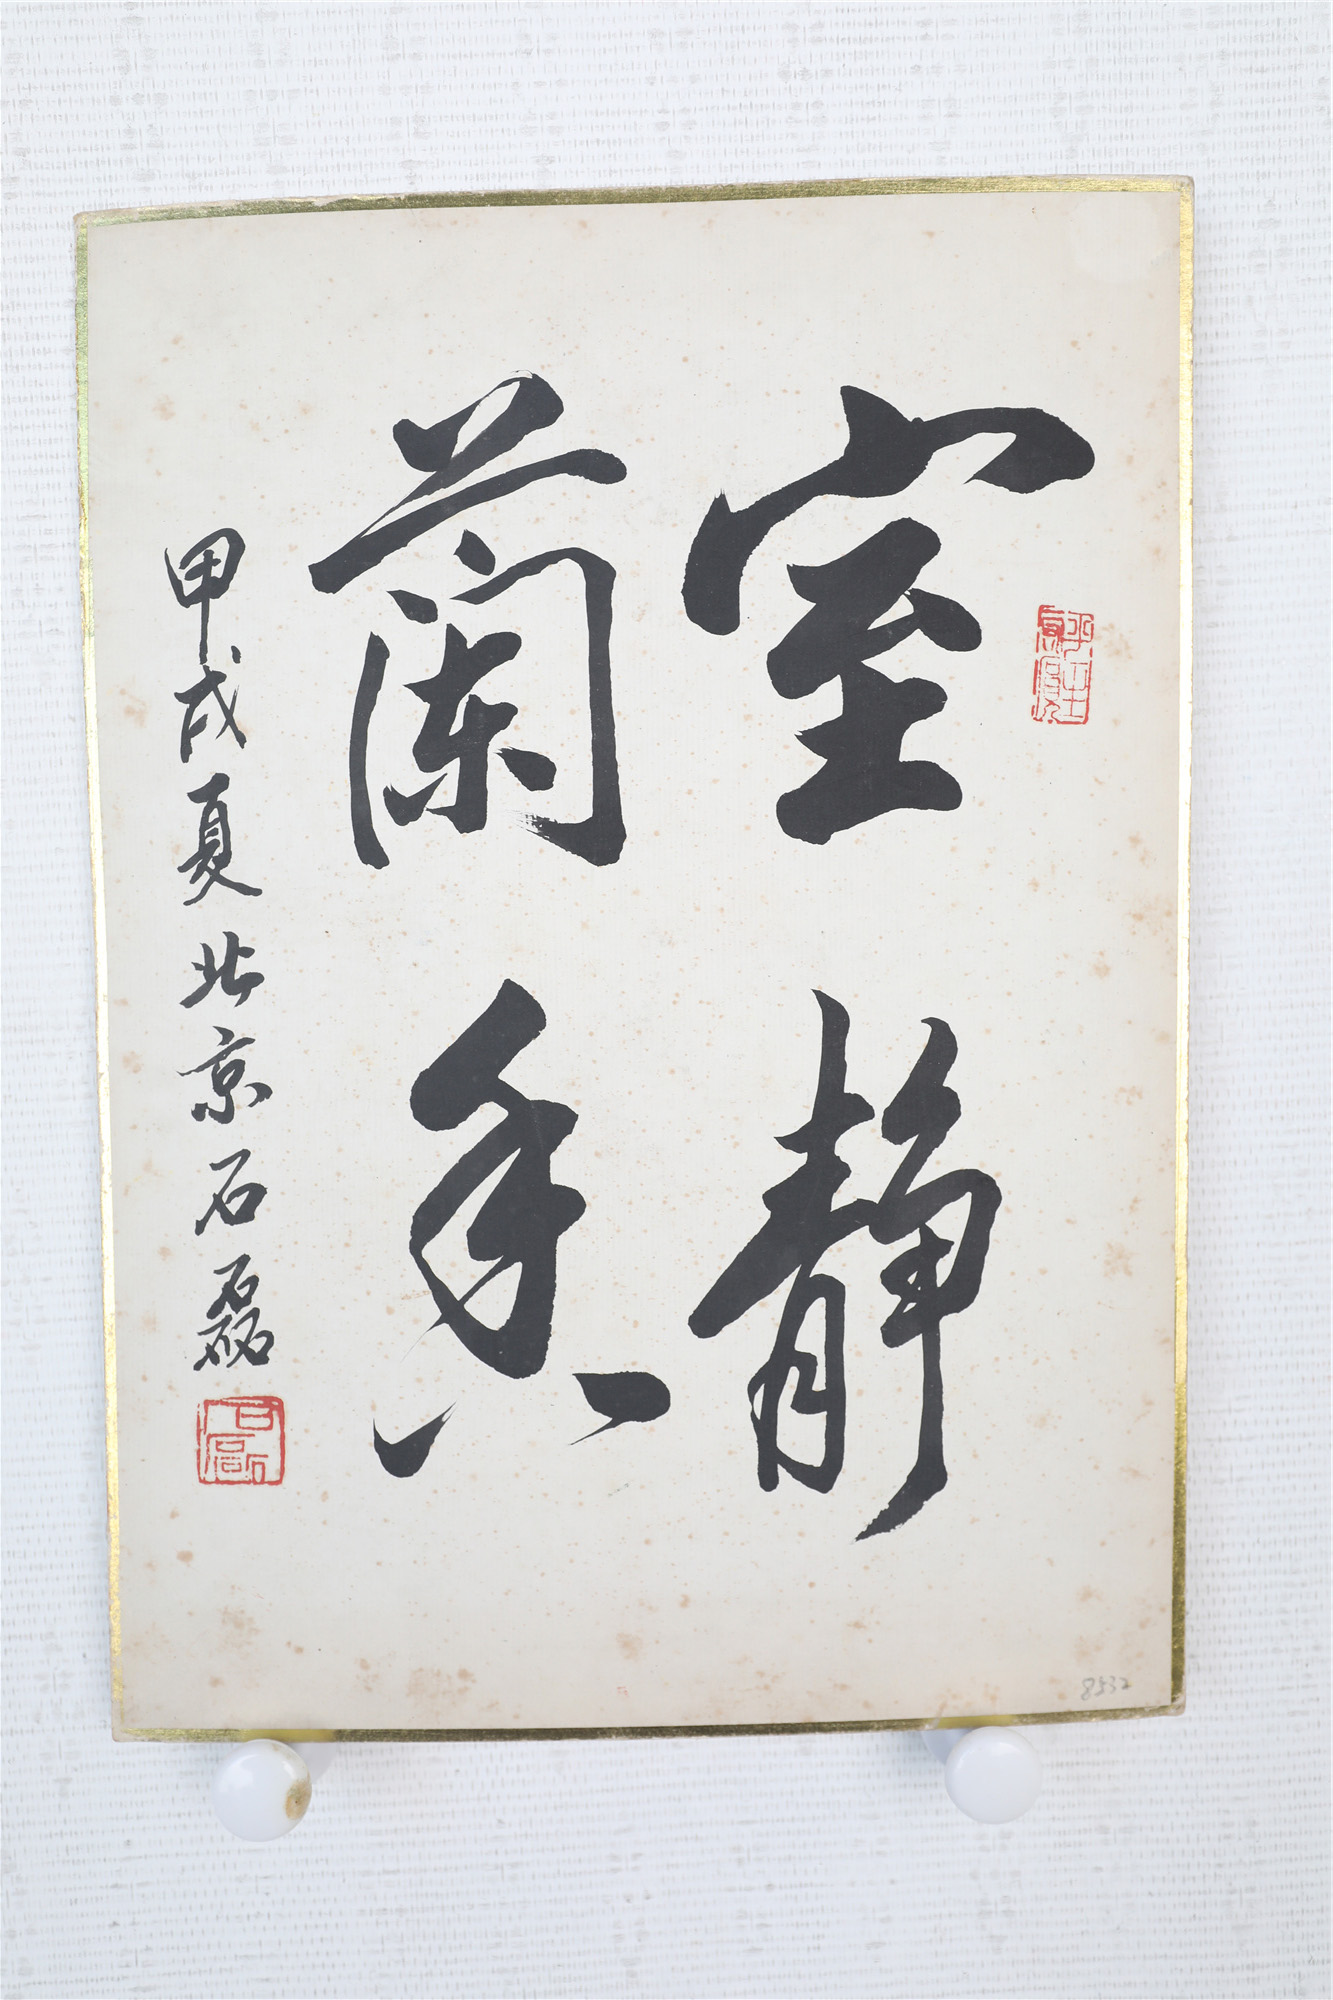 室静
蘭香
甲戌夏北京石磊
8532